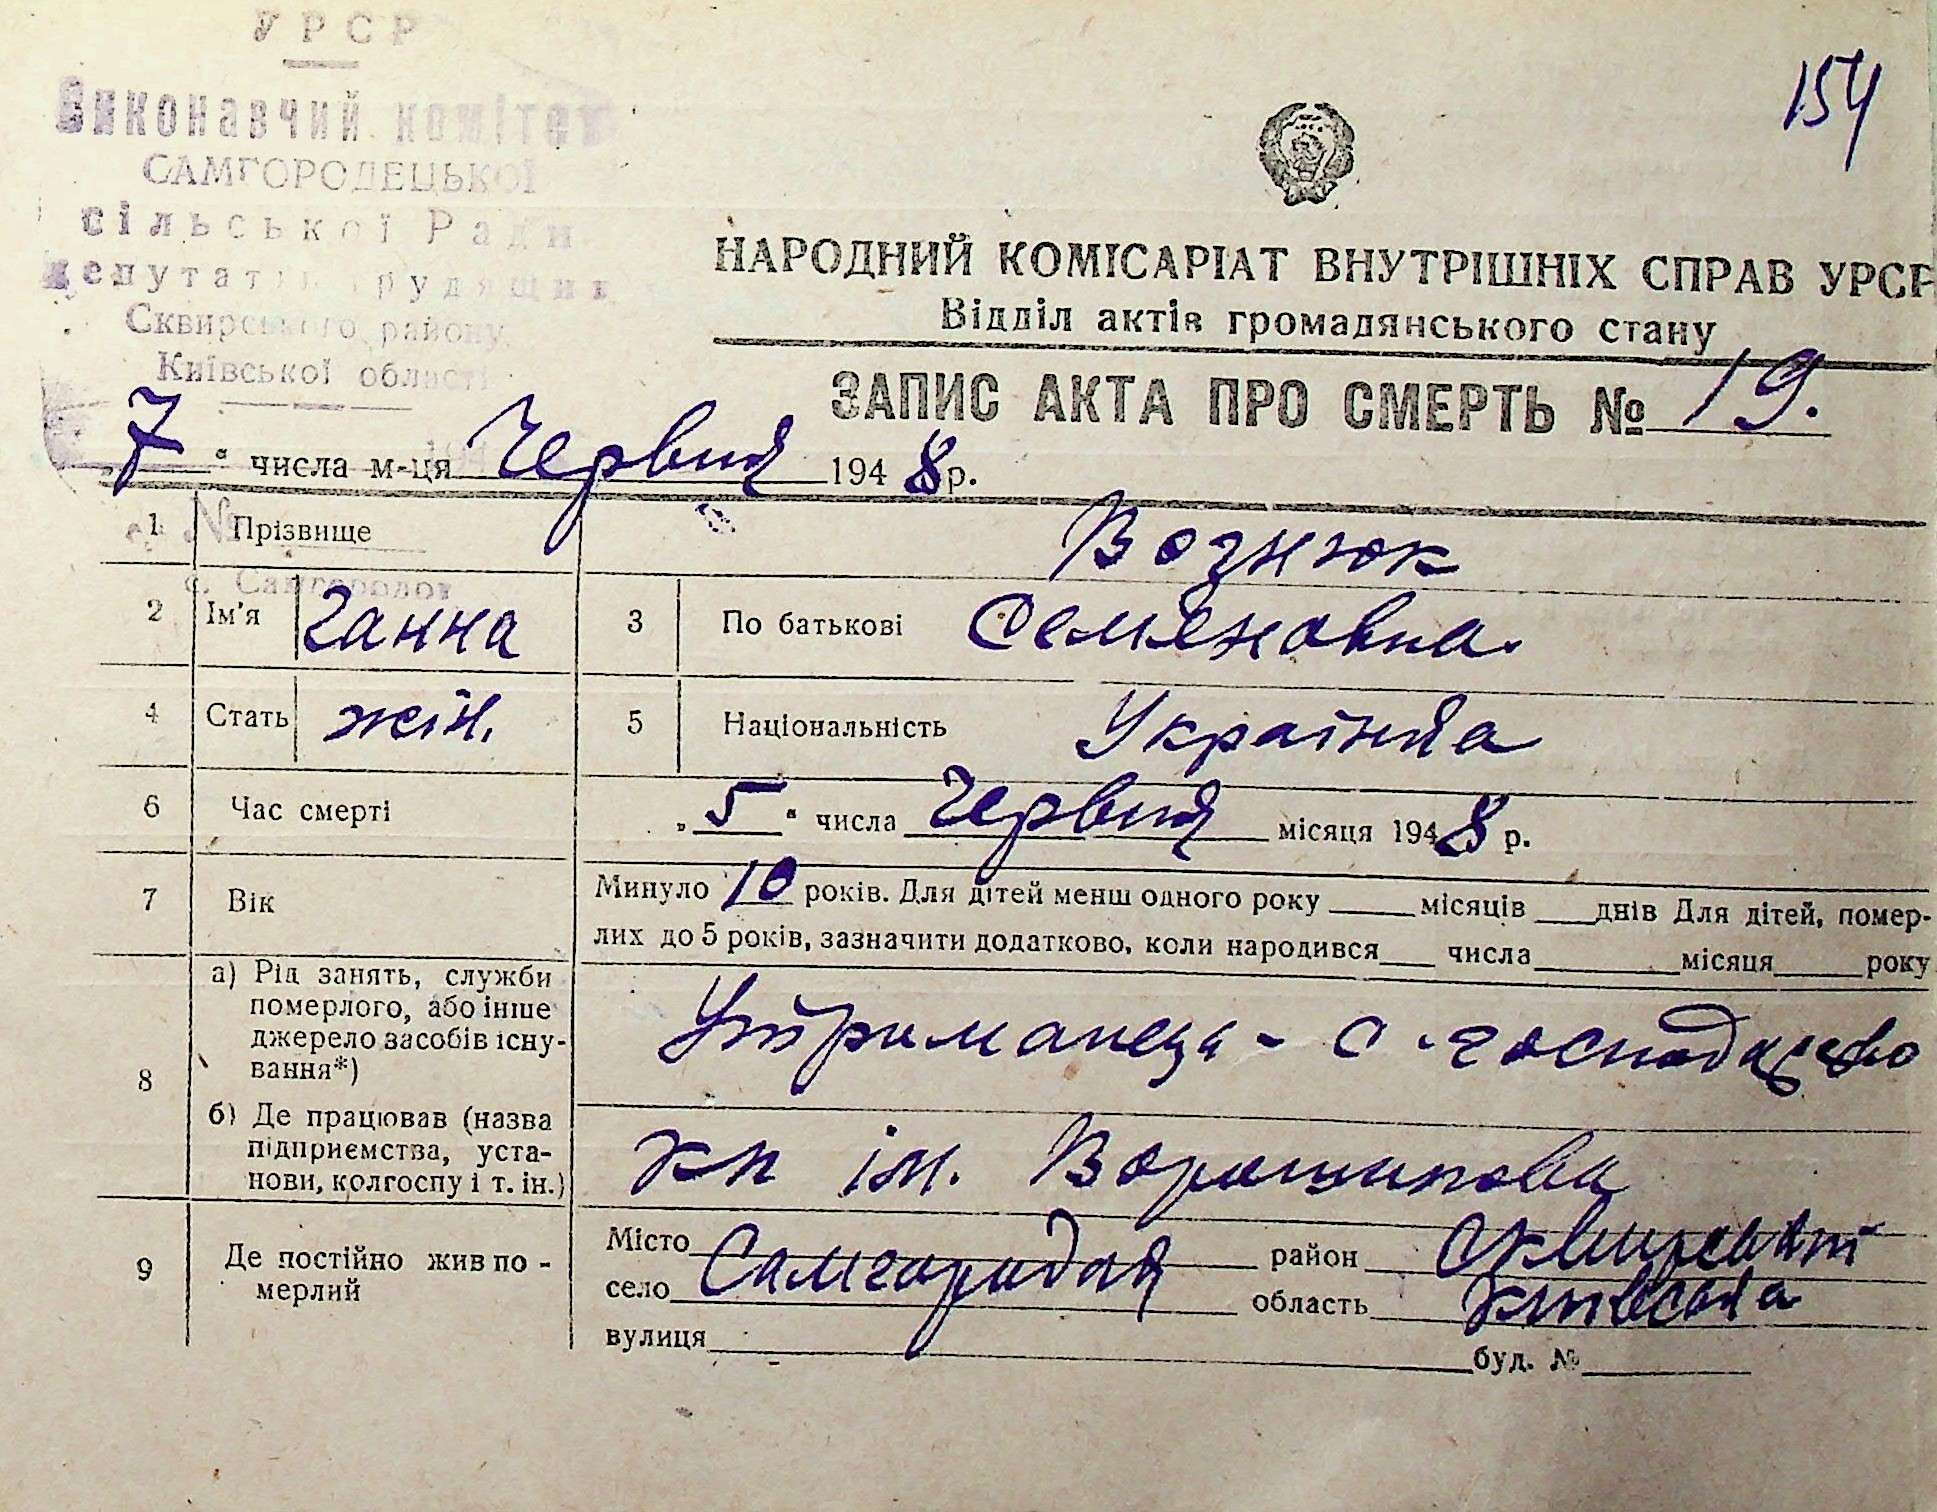 УРСР
Виконавчий комітет
САМГОРОДЕЦЬКОЇ
сільської Ради
депутатів трудящих
Сквирського району
Київської області
154
НАРОДНИЙ КОМІСАРІАТ ВНУТРІШНІХ СПРАВ УРСР
Відділ актів громадянського стану
ЗАПИС АКТА ПРО СМЕРТЬ № 19.
„7“ числа м-ця Червня 1948 р.
1 Прізвище Вознюк
с. Самгородок
2 Ім'я Ганна 3 По батькові Семеновна.
4 Стать жін. 5 Національність Українка
6 Час смерті „5“ числа Червня місяця 1948 р.
7 Вік Минуло 10 років. Для дітей менш одного року ___ місяців ___ днів Для дітей, помер-
лих до 5 років, зазначити додатково, коли народився ___ числа ___ місяця ___ року
8 а) Рід занять, служби
померлого, або інше
джерело засобів існу-
вання*)
Утриманець - с.-господарство
б) Де працював (назва
підприємства, уста-
нови, колгоспу і т. ін.)
ім. Ворошилова
9 Де постійно жив по-
мерлий
Місто ___ район Сквирський
село Самгородок область Київська
вулиця ___ буд. № ___